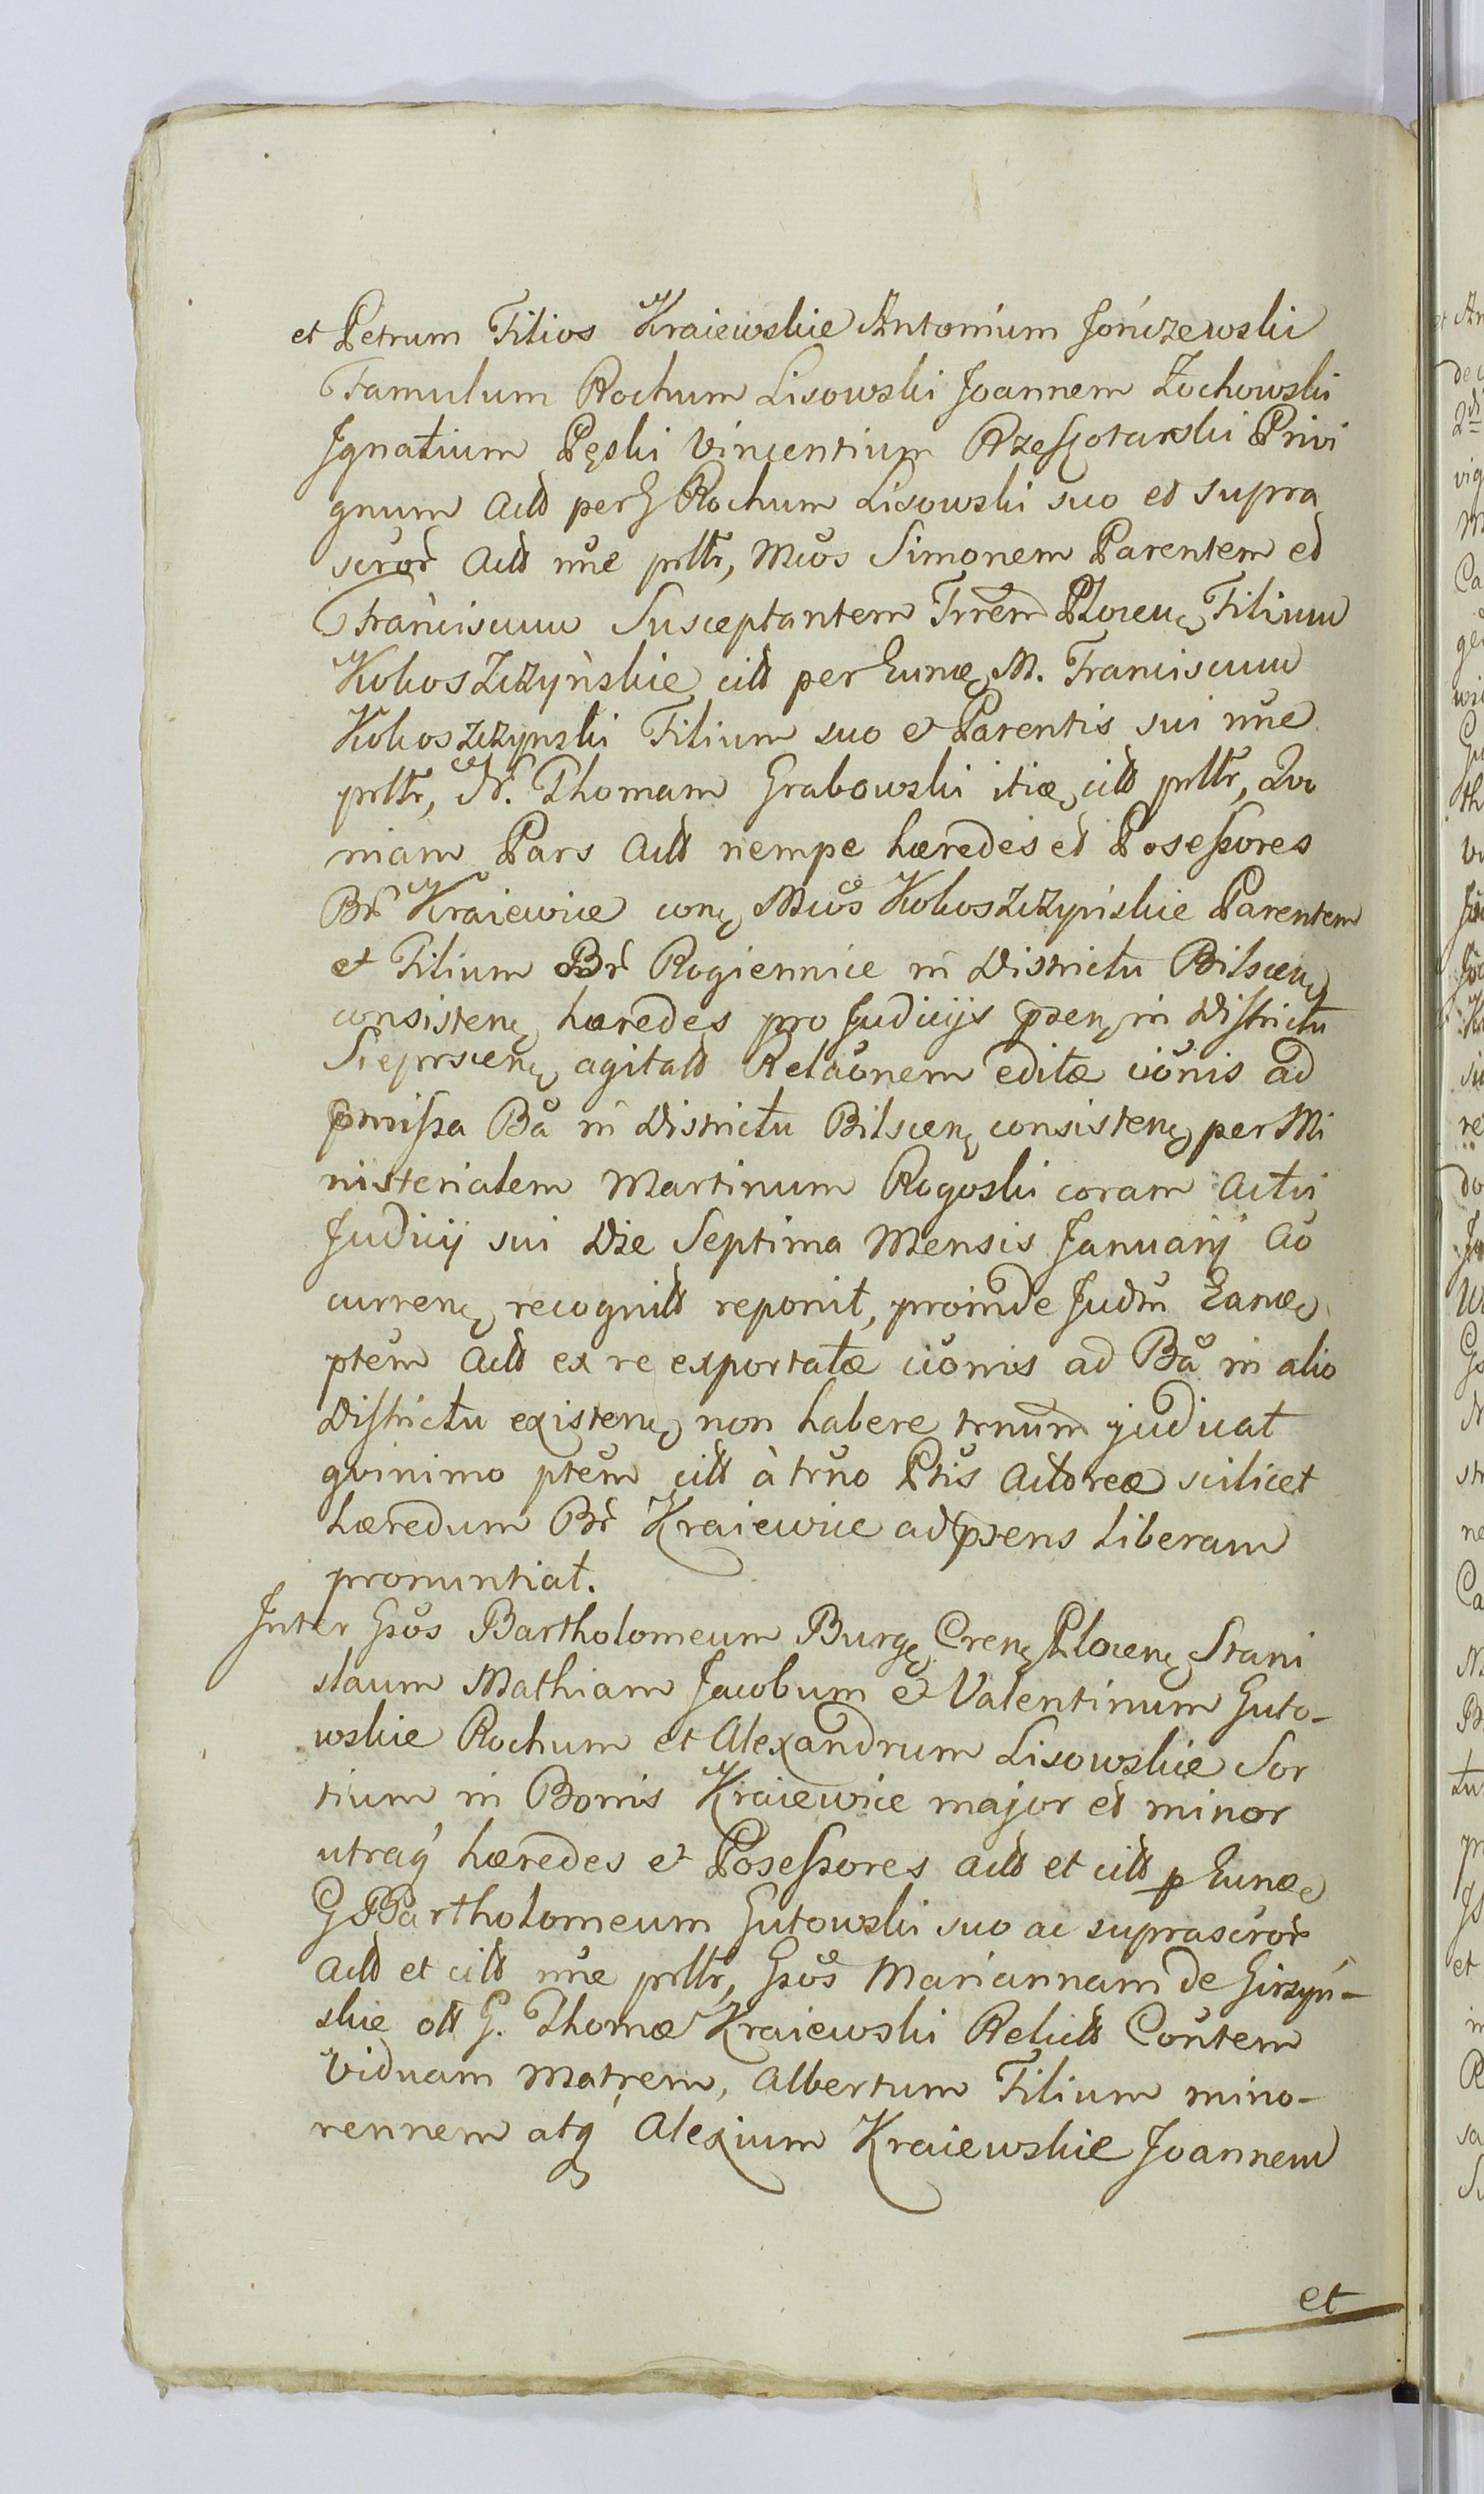 et Petrum Filios Kraiewskie Antonium Jonczewski
Famulum Rochum Lisowski Joannem Zochowski
Ignatium Pęski Vincentium Rzeszotarski Privi
gnum Actt per G Rochum Lisowski suo et supra
scror Actt nne prltr, Mcos Simonem Parentem et
Franciscum Susceptantem Trrem Plocen Filium
Kokoszczyńskie citt per Eunœ M. Franciscum
Kokoszczynski Filium suo et Parentis sui nne
prltr, N. Thomam Grabowski itiœ citt prltr, Qvo
niam Pars Actt nempe hœredes et Posessores
Br Kraiewice conc Mcos Kokoszczyńskie Parentem
et Filium Br Rogiennice in Districtu Bilscen
consisten hœredes pro Judicijs prsen in Districtu
Sieprscen agitatt Relaonem editœ cionis ad
prmissa Ba in Districtu Bilscen consisten per Mi
nisterialem Martinum Rogoski coram Actis
Judicij sui Die Septima Mensis Januarij Ao
curren recognitt reponit, proinde Judm Eanœ
ptem Actt ex re exportatœ cionis ad Ba in alio
Districtu existen non habere trnum judicat
qvinimo ptem citt à trno Ptis Actoreœ scilicet
hœredum Br Kraiewice ad prsens liberam
pronuntiat.
Inter Gsos Bartholomeum Burg Cren Plocen Stani
slaum Mathiam Jacobum et Valentinum Guto-
wskie Rochum et Alexandrum Lisowskie Sor
tium in Bonis Kraiewice major et minor
utraq hœredes et Posessores actt et citt p Eunœ
G Bartholomeum Gutowski suo ac suprascror
actt et citt nne prltr, Gsos Mariannam de Girzyń-
skie ott G. Thomœ Kraiewski Relictt Contem
Viduam Matrem, Albertum Filium mino-
rennem atq Alexium Kraiewskie Joannem
et